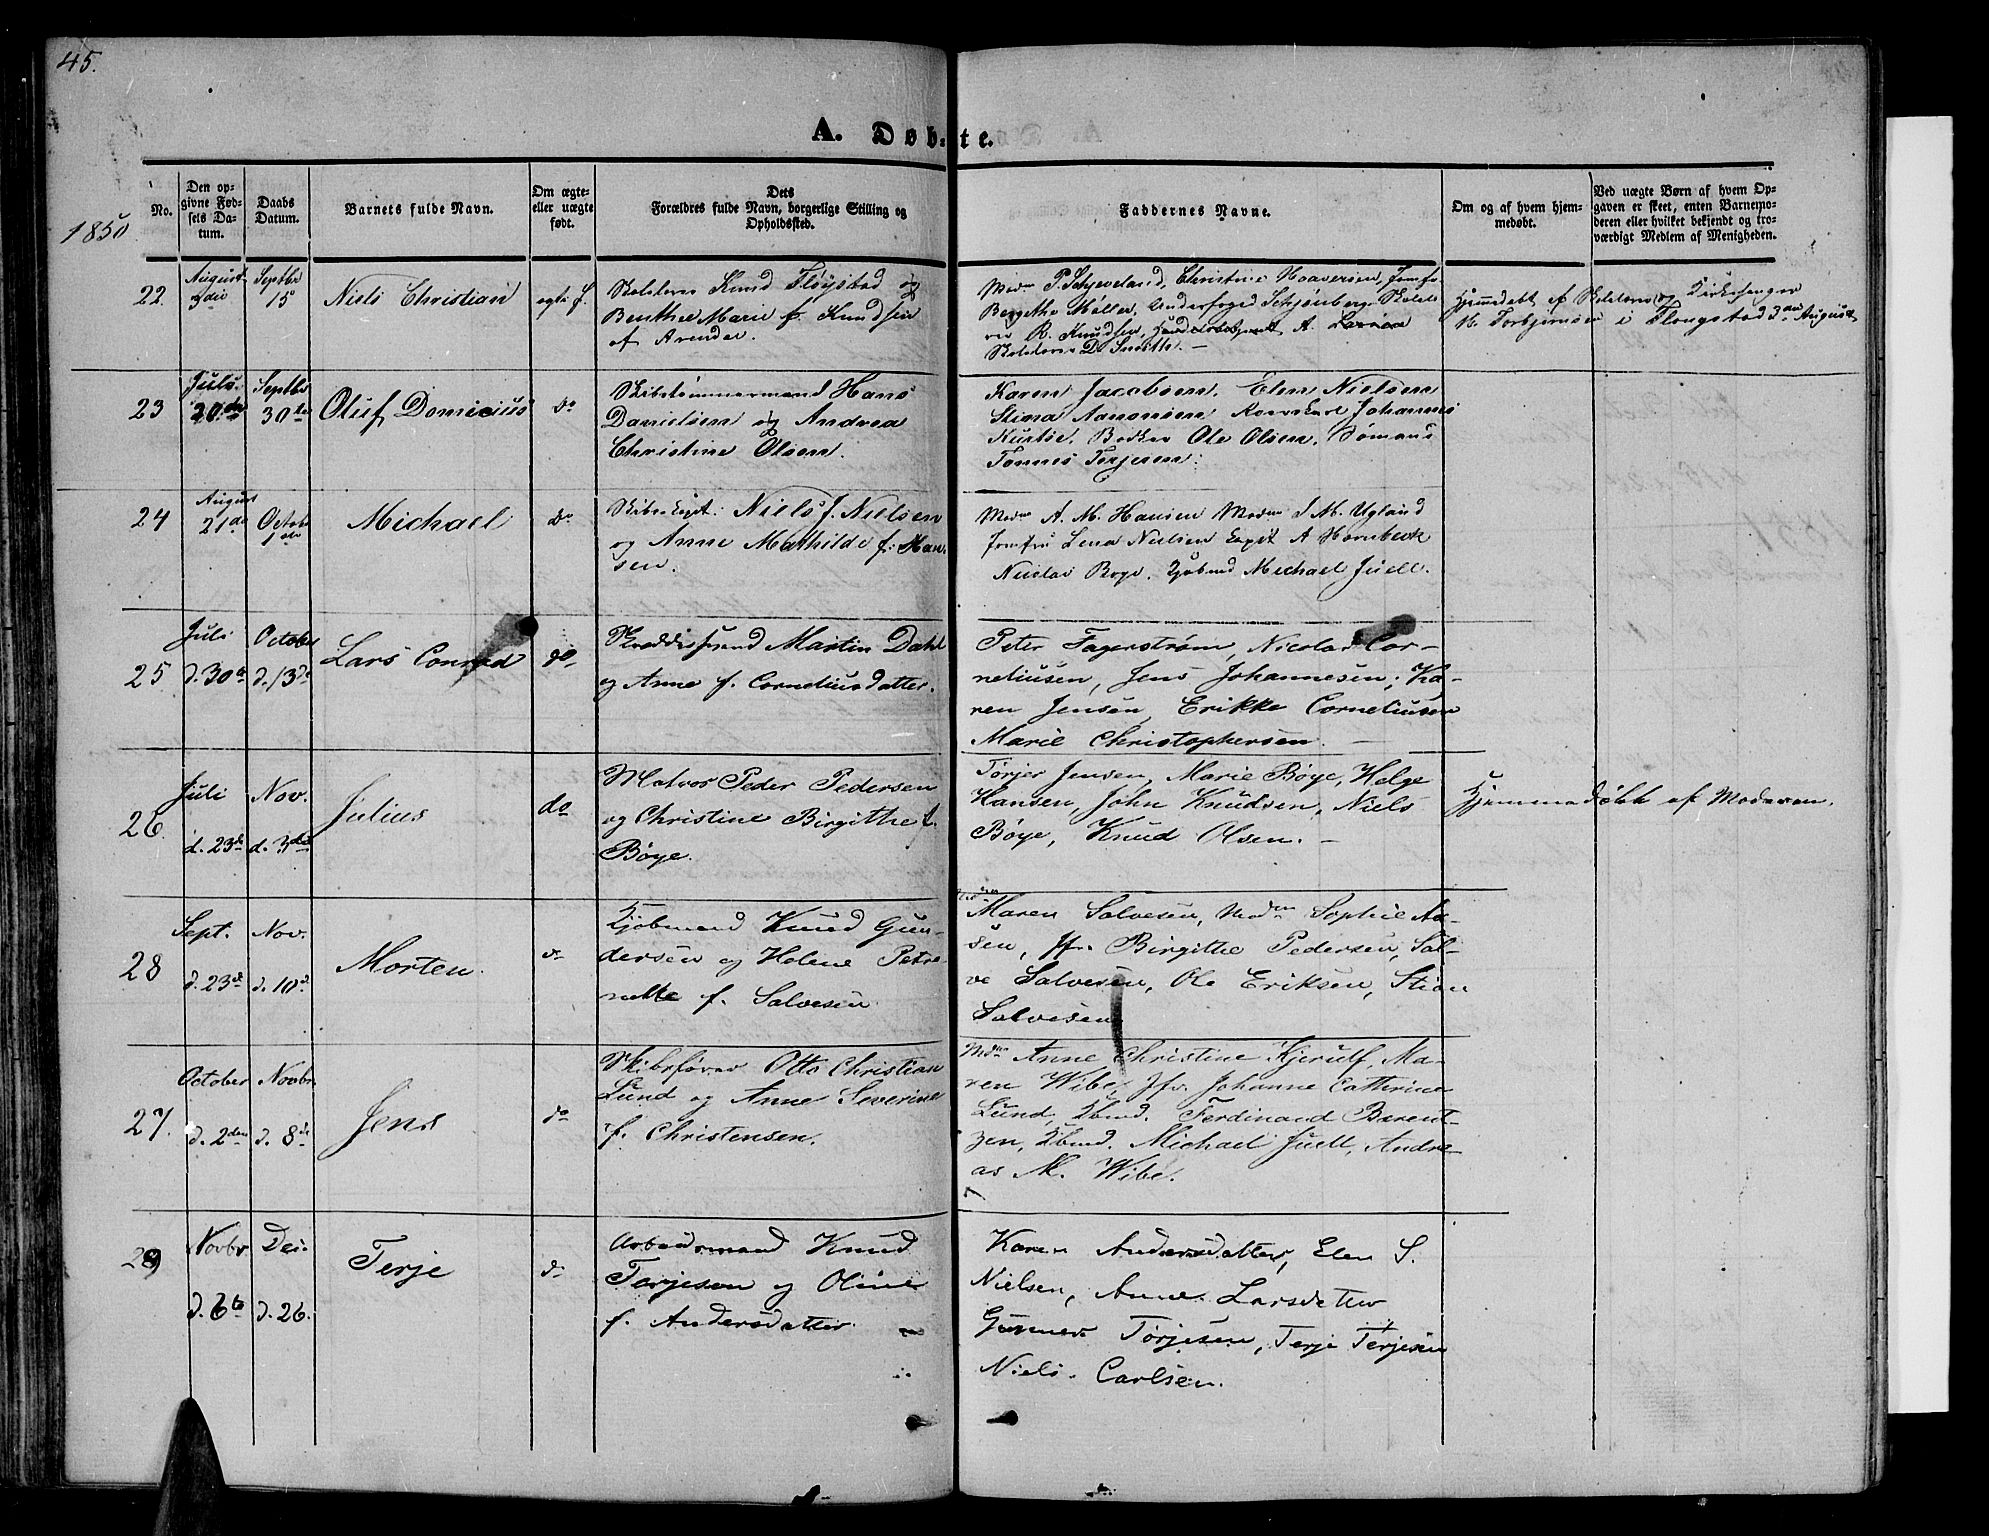 45.
A. Døbte.
1850
No.
Den opgivne Fødsels Datum.
Daabs Datum.
Barnets fulde Navn.
Om ægte eller uægte født.
Dets Forældres fulde Navn, borgerlige Stilling og Opholdssted.
Faddernes Navne.
Om og af hvem hjemmedøbt.
Ved uægte Børn af hvem Opgaven er skeet, enten Barnemoderen eller hvilket bekjendt og troværdigt Medlem af Menigheden.
22.
August 3die
Septbr 15
Niels Christian
egte f.
Skolelærer Knud Fløystad og
Benthe Marie f. Knudsen
af Arendal.
Madm P. Schjeveland, Christine Haaversen, Jomfr
Bergethe Møller, Underfoged Schjønberg, Skolelæ
rer K. Knudsen, A. Larsen
Skolelærer D. Smith. -
Hjemmedøbt af Skolelærer og Kirkesanger
N. Torbjørnsen i Flougstad 3die August
23
Juli 20de
Septbr 30te
Oluf Domicius
do
Skibstømmermand Hans
Danielsen og Andrea
Christine Olsen.
Karen Jacobsen. Elen Nielsen
Stina Aanonsen Johannes
Bødker Ole Olsen, Sømand
Tønnes Terjesen.
24
August 21de
Octobr 1ste
Michael
do
Skibscapt: Niels J. Nielsen
og Anne Mathilde f. Han
sen.
Madm A. M. Hansen Madm I. M. Ugland
Jomfru Lena Nielsen Capt A Hornbeck
Nicolai Boye. Kjøbmd Michael Juell.
25
Juli d. 30te
October d. 13de
Lars Conrad
do
Skreddersvend Martin Dahl
og Anne f. Corneliusdatter.
Peter Fagerstrøm, Nicolai Cor-
neliusen, Jens Johannesen, Ka-
ren Jensen, Erikke Corneliusen
Marie Christophersen. -
26.
Juli d. 23de
Nov. d. 3die
Julius
do
Matros Peder Pedersen
og Christine Birgitthe f.
Bøye.
Terjer Jensen, Marie Bøye, Helge
Hansen, John Knudsen, Niels
Bøye, Knud Olsen. -
Hjemmedøbt af Moderen.
28
Sept. d. 23de
Nov. d. 10de
Morten
do
Kjøbmand Knud Gun-
dersen og Helene Petre-
nelle f. Salvesen
Maren Salvesen, Madm Sophie Aa-
sen, Jfr. Birgithe Pedersen, Sal-
ve Salvesen, Ole Eriksen, Stian
Salvesen
27.
October d. 2den
Novbr d. 8de
Jens
do
Skibsfører Otto Christian
Lund og Anne Severine
f. Christensen.
Mdm Anne Christine Kjerulf, Ma-
ren Wibe, Jfr. Johanne Cathrine
Lund, Kbmd. Ferdinand Barent-
zen, Kbmd. Michael Juell, Andre-
as M. Wibe.
29
Novbr d. 6te
Dec. d. 26.
Terje
do
Arbeidsmand Knud
Terjesen og Oline
f. Andersdatter
Karen Andersdatter, Elen S.
Nielsen, Anne Larsdatter
Gunner Tørjesen, Terje Terjesen
Niels Carlsen.